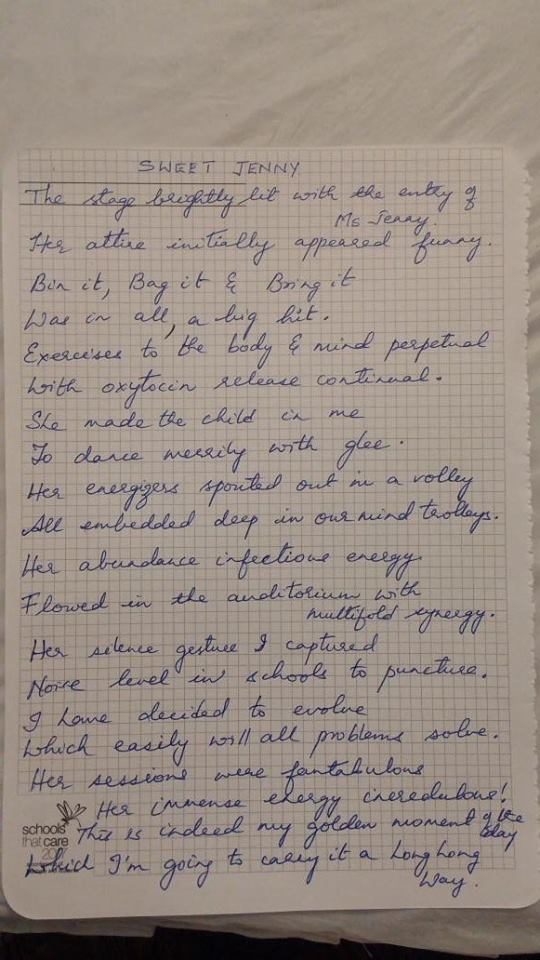 SWEET JENNY
The stage brightly lit with the entry of
Ms Jenny.
Her attire initially appeared funny.
Bin it, Bag it & Bring it
Was in all, a big hit.
Exercises to the body & mind perpetual
With oxytocin release continual.
She made the child in me
To dance merrily with glee.
Her energizers spouted out in a volley
All embedded deep in our mind trolleys.
Her abundance infectious energy
Flowed in the auditorium with
multifold synergy.
Her silence gesture I captured
Noise level in schools to puncture.
I have decided to evolve
Which easily will all problems solve.
Her sessions were fantabulous
Her immense energy incredulous!
This is indeed my golden moment of the
day
Which I'm going to carry it a Long Long
Way.
schools
that care